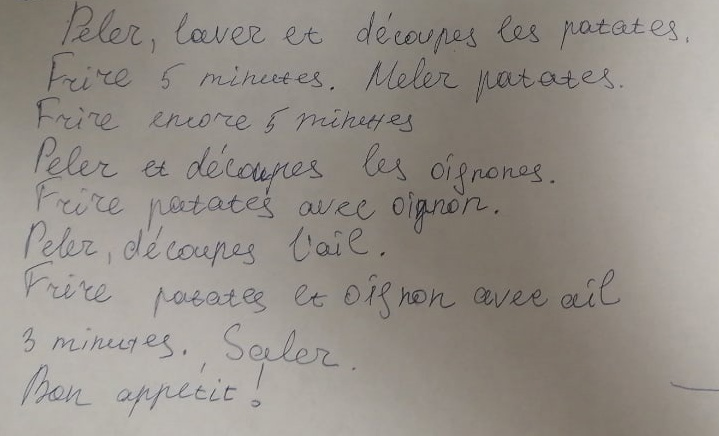 Peler, laver et découpes les patates.
Frire 5 minutes. Meler patates.
Frire encore 5 minutes
Peler et découpes les oignones.
Frire patates avec oignon.
Peler, découpes l'ail.
Frire patates et oignon avec ail
3 minutes. Saler.
Bon appétit!